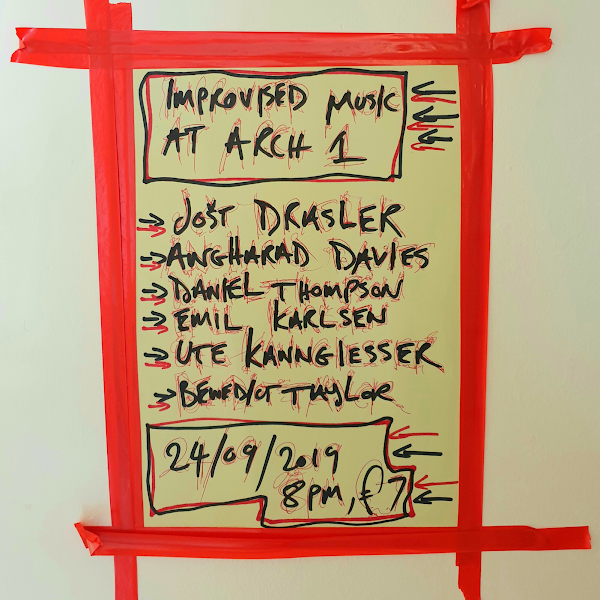 IMPROVISED MUSIC
AT ARCH 1
JOŠT DRASLER
ANGHARAD DAVIES
DANIEL THOMPSON
EMIL KARLSEN
UTE KANNGIESSER
BENEDICT TAYLOR
24/09/2019
8PM, £7